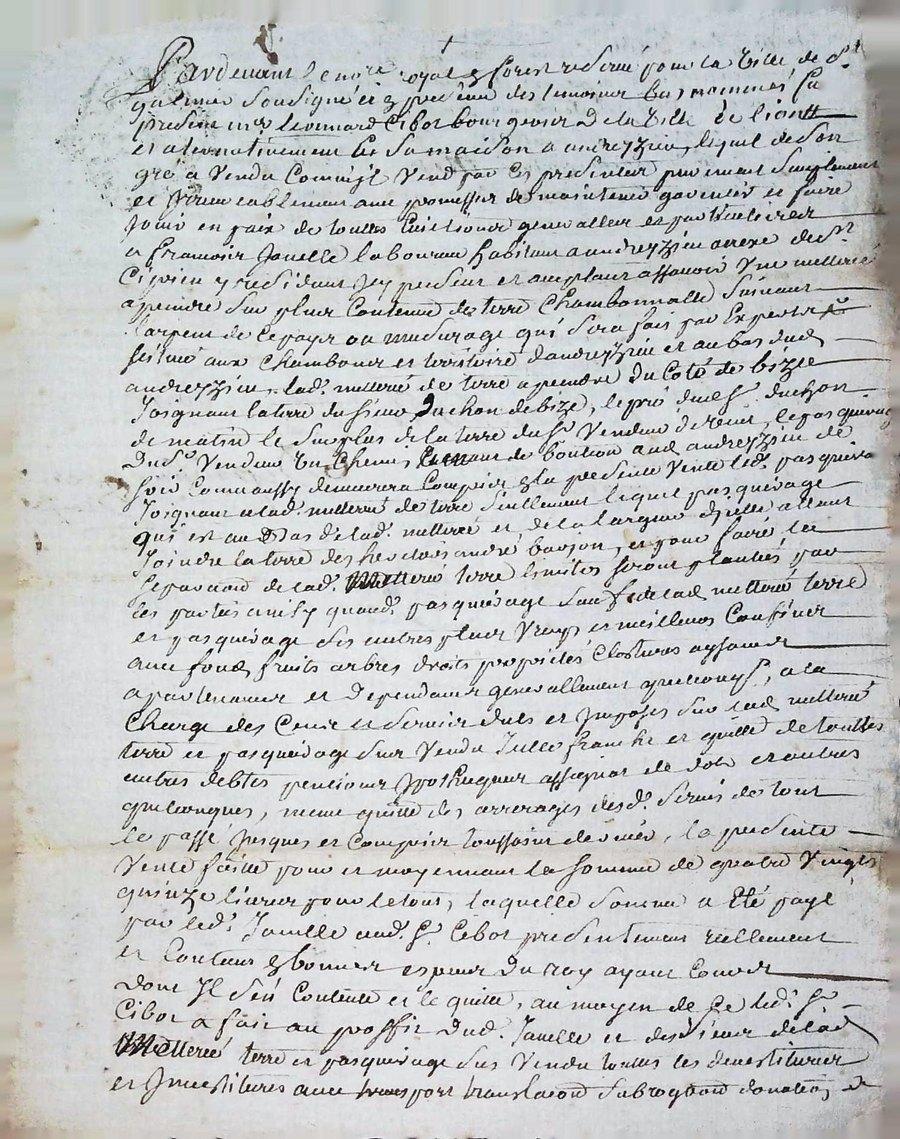 Pardevant le no.re royal & forest réservé pour la ville de St
galmier soussigné et & présence des temoins bas nommés fu
présent mre Léonnard Cibot bourgeois de la ville de lion
et alternativement de sa maison a andrezieu, lequel de son
gré a vendu Comme jl vend par ces presentes purement simplement
et jrrevocablement avec promesse de maintenir garentir et faire
jouir en paix de touttes Evictions generalles et particulieres
a francois Janelle laboureur habitant a andrezieu annexe de St
Ciprien y residant jcy present et acceptant assavoir Une metteré
a prendre sur plus Contenue de terre Chambonnalle suivant
l'arpent de ce pays ou mesurage qui sera fait par Experts
scitué aux Chambons et territoire d'andrezieu et au bas dud.
andrezieu, lad. metteré de terre a prendre du Coté de bize
Joignant la terre du sieur Duchon de bize, le pré dud. Sr. duchon
de matin le surplus de la terre du Sr. Vendeur de vent, le pasquérage
dud. Sr. Vendeur un Chemin tenant de bouteon aud. andrezieu de
soir Comme aussy demeurera Compris & la presente Vente led. pasquérage
Joignant a lad. metteré de terre seullement lequel pasquérage
qui est au Bas de lad. metteré et de la largeur d'jcelle allant
Joindre la terre des heritiers andré baujon, et pour faire la
separaõn de lad. metteré terre limites seront plantés par
les parties ainsy quaud. pasquérage sauf de lad. metteré terre
et pasquérage ses autres plus Vrays et meilleurs Confins
avec fonds fruits arbres droits proprietés Clostures aysances
apartenances et dependances generallement quelconqs, a la
Charge des Cens et servis dues et jmposés sur lad. metteré
terre et pasquérage sus Vendu Jcelle franche et quitte de touttes
autres debtes pensions jpotheques assignas de dote et autres
quelconques, meme quitte des arrerages desd. servis de tout
le passé jusques et Compris toussaint dernier, la presente
Vente faitte pour et moyennant la somme de quatre Vingts
quinze livres pour le tout, laquelle somme a Eté payé
par led. Janelle aud. Sr. Cibot presentement reellement
et Contant & bonnes especes du roy ayant Cours
dont Jl s'en Contente et le quitte, au moyen de Ce led. Sr.
Cibot a fait au proffit dud. Janelle et des siens de lad.
Metteré terre et pasquérage sus Vendu touttes les devestitures
et Jnvestitures avec transport translaõn subrogaõn donation de